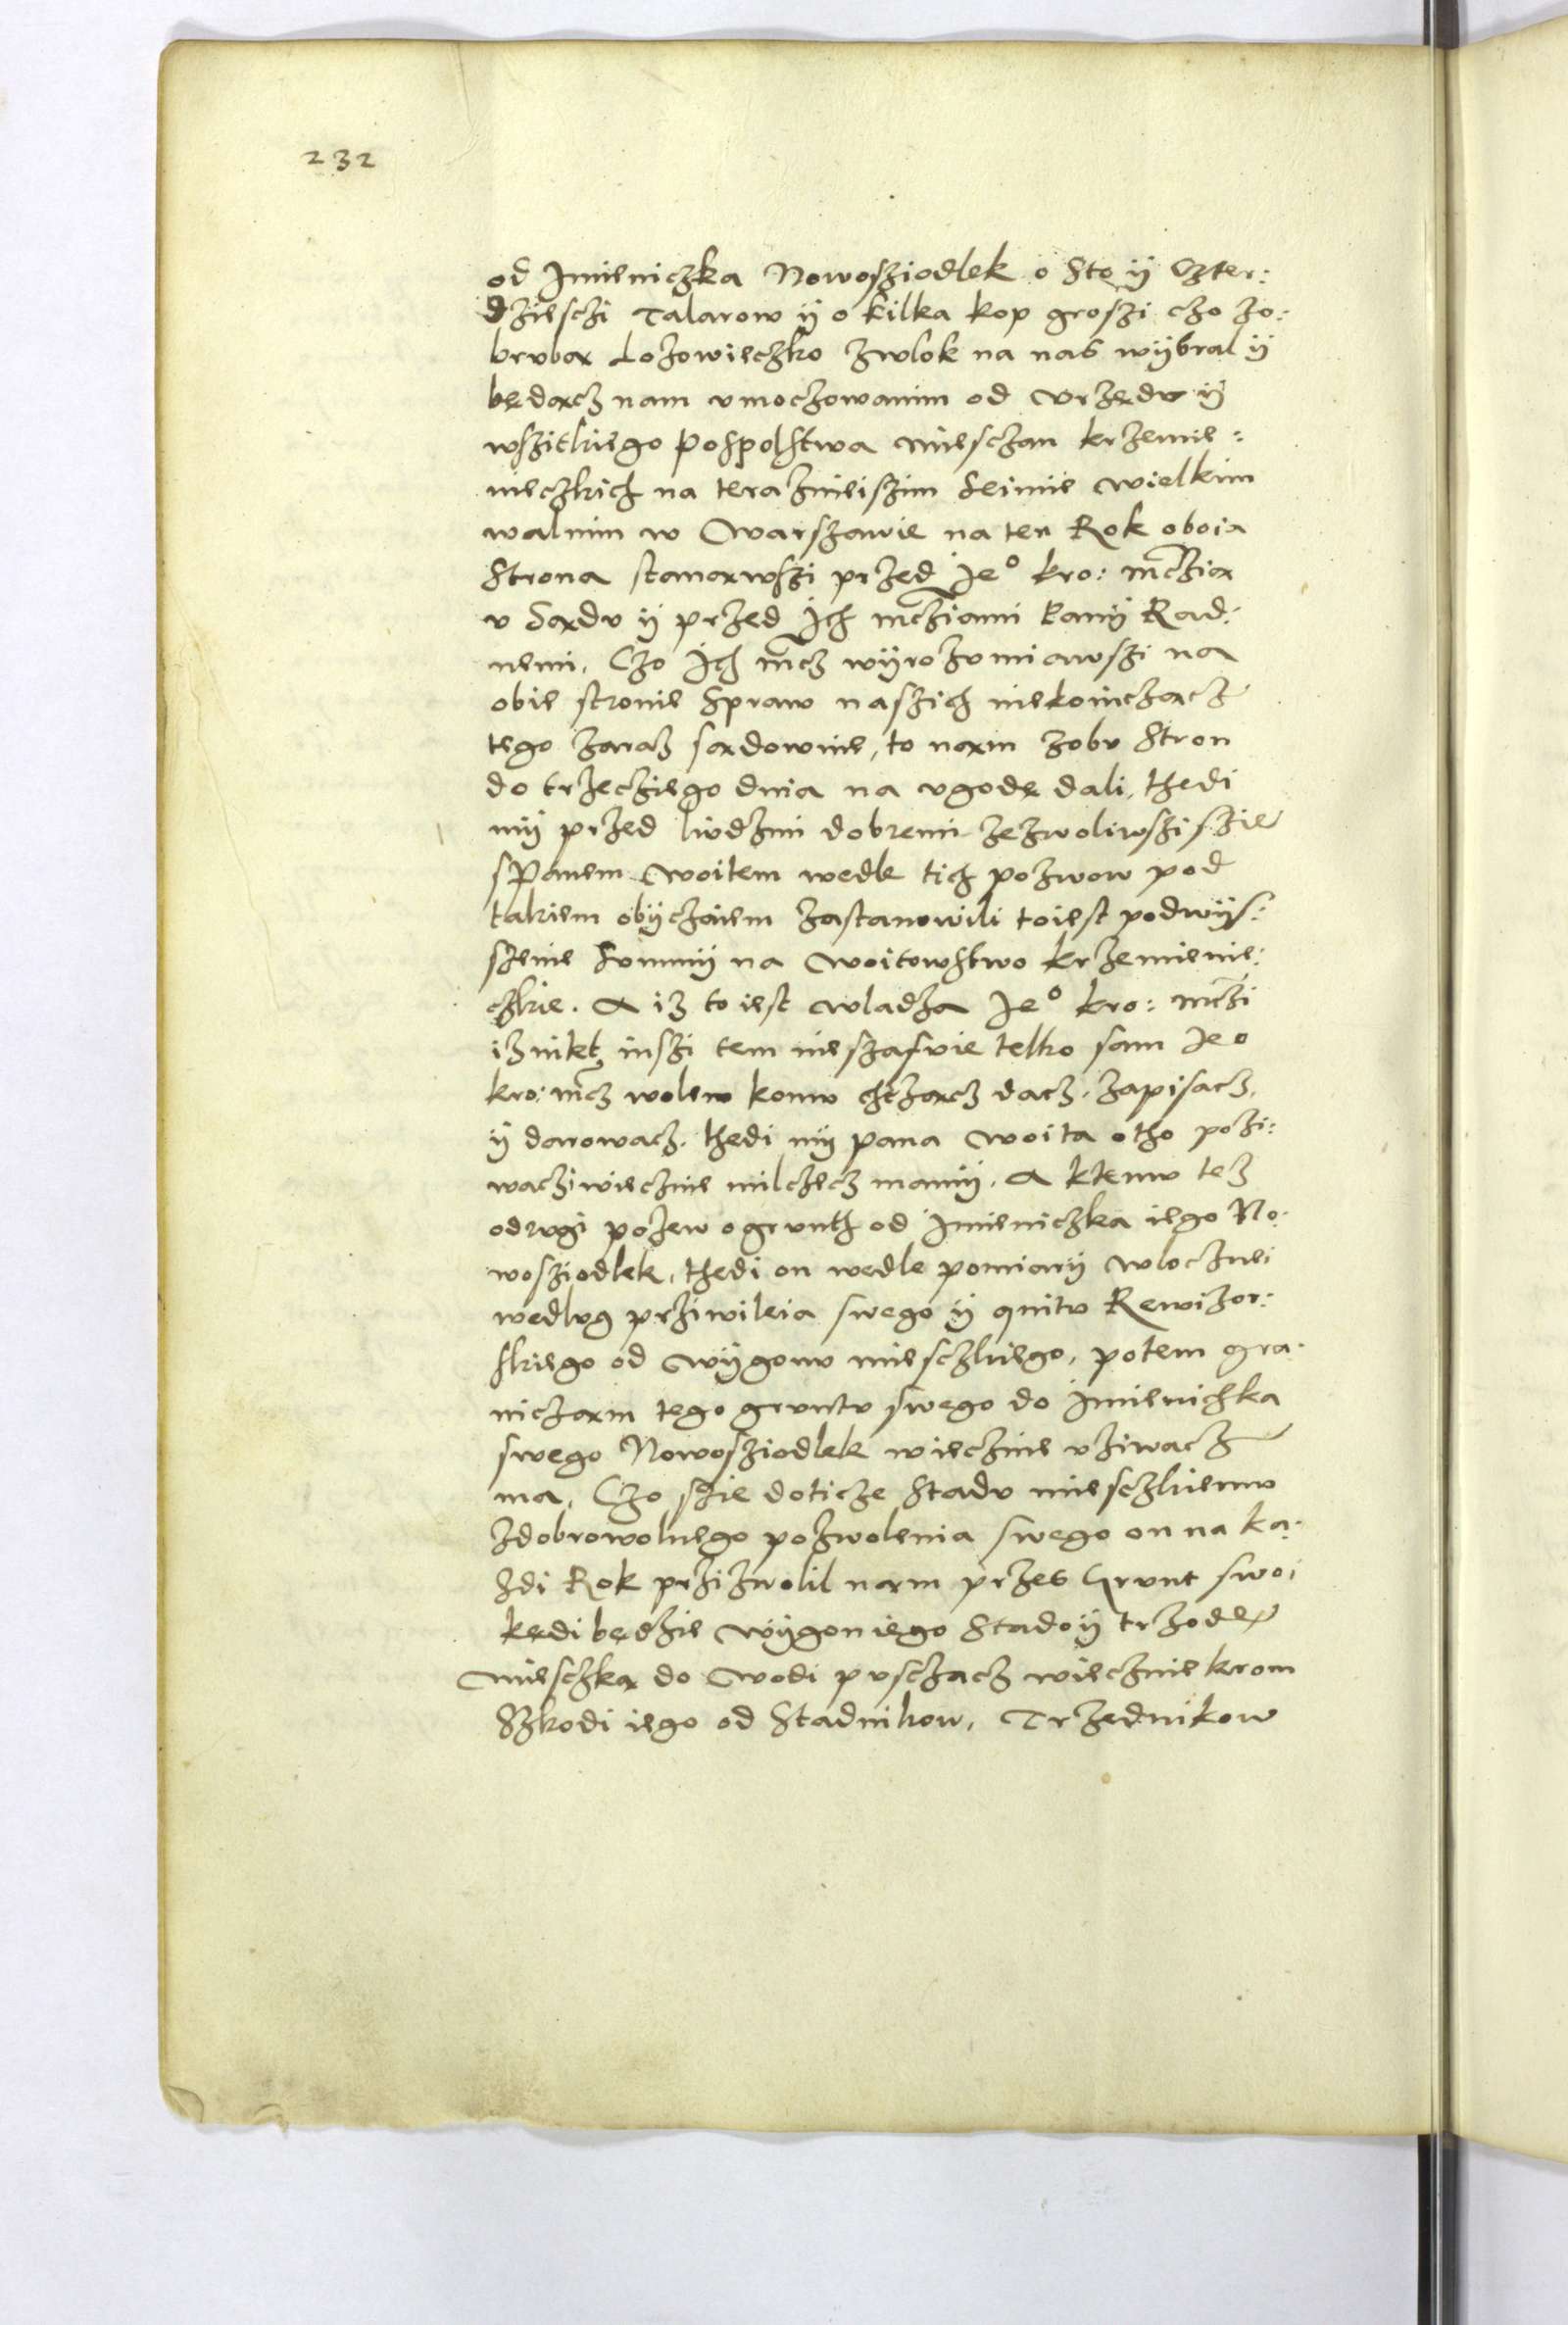 232
od Imieniczka Nowosziodlek o Sto ÿ Czter:
dziesczi Talarow ÿ o kilka kop groszi czo zo:
brubą Lozowieczko zwlok na nas wÿbral ÿ
będącz nam vmoczowanim od vrzędu ÿ
wszitkiego pospolstwa miesczan krzemie:
nieczkich na terazniejszim Seimie wielkim
walnim w Warszawie na ten Rok oboia
Strona stanąwszi przed Je° kro: mczią
v Sądu ÿ przed Ich mcziami Panÿ Rad:
nemi, Czo Ich mcz wÿrozumiawszi na
obie stronie Spraw naszich niekonczącz
tego zaraz sądownie, to nąm zobu Stron
do trzecziego dnia na vgodę dali, thedi
mÿ przed liudzmi dobremi zezwoliwszi szię
sPanem Woitem wedle tich pozwow pod
takiem obÿczaiem zastanowili toiest podwÿs:
szenie Summÿ na Woitowstwo krzemienie:
czkie. A iz to iest wladza Je° kro: mczi
iznikt inszi tem nie szafuie telko sam Je°
kro: mcz wolen komu chczącz dacz, zapisacz,
ÿ darowacz. thedi mÿ pana woita otho pozi:
wacziwiecznie milczecz mamÿ. A ktemu tez
odrugi pozew ogrunth od Imieniczka iego No:
wosziodlek, thedi on wedle pomiarÿ wlocznei
wedlug prziwileia swego ÿ qnitu Rewizor:
skiego od wÿgonu miesczkiego, potem gra:
niczam tego gruntu swego do Imienichka
swego Nowosziodlek wiecznie vziwacz
ma, Czo szie doticze Stadu miesczkiemu
zdobrowolnego pozwolenia swego on na ka:
zdi Rok przizwolil nąm przes Grunt swoi
kędi będzie wÿgon iego Stado ÿ trzodę
miesczką do Wodi pusczacz wiecznie krom
Szkodi iego od Stadnikow, Trzednikow